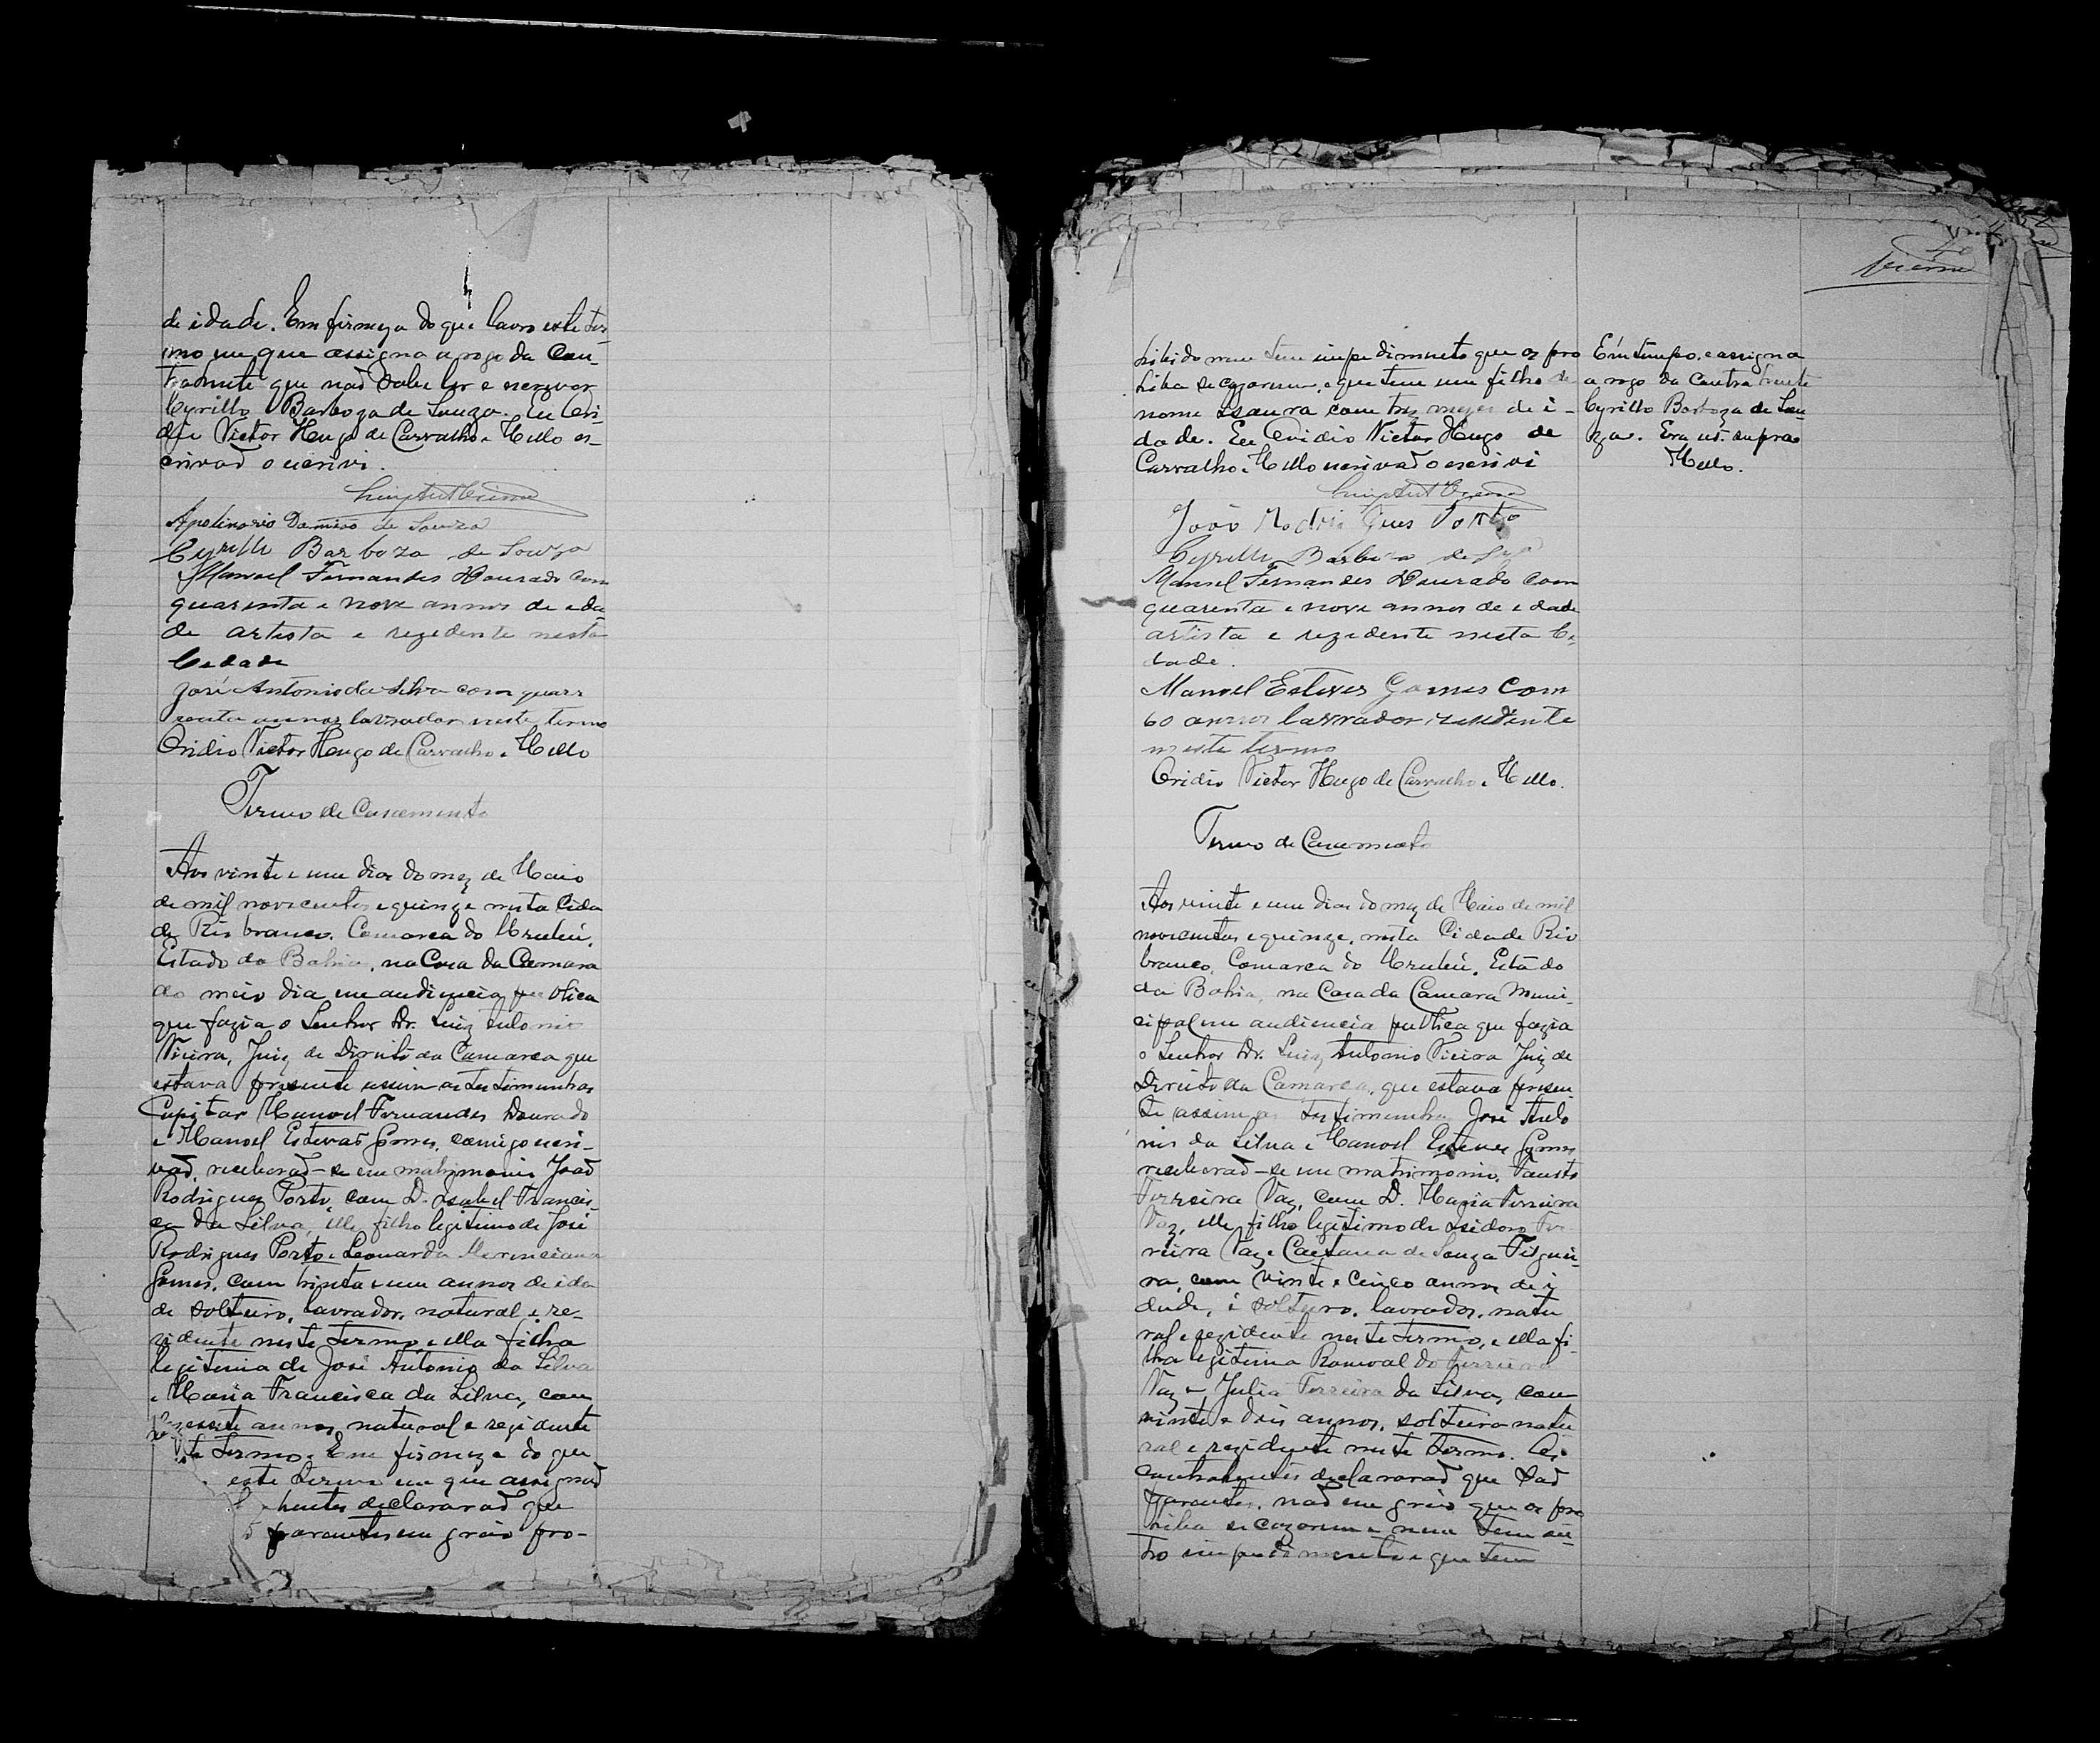 de idade. Em firmeza do que lavro este ter-
mo em que assigna a rogo da Con-
trahente que não sabe ler e escrever
Cyrillo Barboza de Souza. Eu Ovi-
dio Victor Hugo de Carvalho e Mello es-
crivão o escrivi.
Apolinario Damião de Souza
Cyrillo Barboza de Souza
Manoel Fernandes Dourado com
quarenta e nove annos de eda
de artista e rezedente nesta
Cedade
José Antonio da Silva com quar
renta annos lavrador neste termo
Ovidio Victor Hugo de Carvalho e Mello
Termo de Casamento
Aos vinte e um dias do mez de Maio
de mil novecentos e quinze nesta Cida
de Rio branco, Comarca do Urubú,
Estado da Bahia, na Casa da Camara
ao meio dia em audiencia publica
que fazia o Senhor Dr. Luiz Antonio
Vieira, Juiz de Direito da Comarca que
estava presente assim as testimunhas
Capitão Manoel Fernandes Dourado
e Manoel Estevão Gomes, comigo escri-
vão, receberaõ-se em matrimonio João
Rodrigues Porto, com D. Isabel Francis-
ca da Silva, elle, filho legitimo de José
Rodrigues Porto e Leonarda
Gomes, com trinta e um annos de ida
de solteiro, lavrador, natural e re-
zidente neste termo, e ella filha
legitima de José Antonio da Silva
e Maria Francisca da Silva, com
annos, natural e rezidente
termo. Em firmeza do que
este termo em que assignaõ
hentes declararaõ que
parentes em gráo pro-
Vieira
hibido nem tem impedimento que os pro
hiba se cazarem, e que tem um filho de
nome Isaura com tres mezes de i-
dade. Eu Ovidio Victor Hugo de
Carvalho e Mello escrivaõ o escrivi
Em tempo. e assigna
a rogo da Contrahente
Cyrillo Barboza de Sou-
za. Era ut supra
Mello.
João Rodrigues Porto
Cyrillo Barboza de Souza
Manoel Fernandes Dourado com
quarenta e nove annos de edade
artista e rezedente nesta Ce
dade.
Manoel Esteves Gomes com
60 annos lavrador residente
neste termo
Ovidio Victor Hugo de Carvalho e Mello.
Termo de Casamento
Aos vinte e um dias do mez de Maio de mil
novecentos e quinze, nesta Cidade Rio
branco, Comarca do Urubú, Estado
da Bahia, na Casa da Camara Muni-
cipal em audiencia publica que fazia
o Senhor Dr. Luiz Antonio Vieira Juiz de
Direito da Comarca, que estava presen-
te assim as testimunhas José Anto
nio da Silva e Manoel Esteves Gomes
receberaõ-se em matrimonio, Fausto
Ferreira Vaz, com D. Maria Ferreira
Vaz, elle, filho legitimo de Isidoro Fer-
reira Vaz e Caetana de Souza Filguei-
ra, com vinte e cinco annos de i
dade, é solteiro, lavrador, natu
ral e rezidente neste termo, e ella fi-
lha legitima Romoaldo Ferreira
Vaz e Julia Ferreira da Silva, com
vinte e dois annos, solteira natu
ral e rezidente neste termo. Os
contrahentes declararaõ que saõ
parentes, naõ em gráo que os pro
hiba se cazarem e nem tem ou-
tro impedimento e que tem